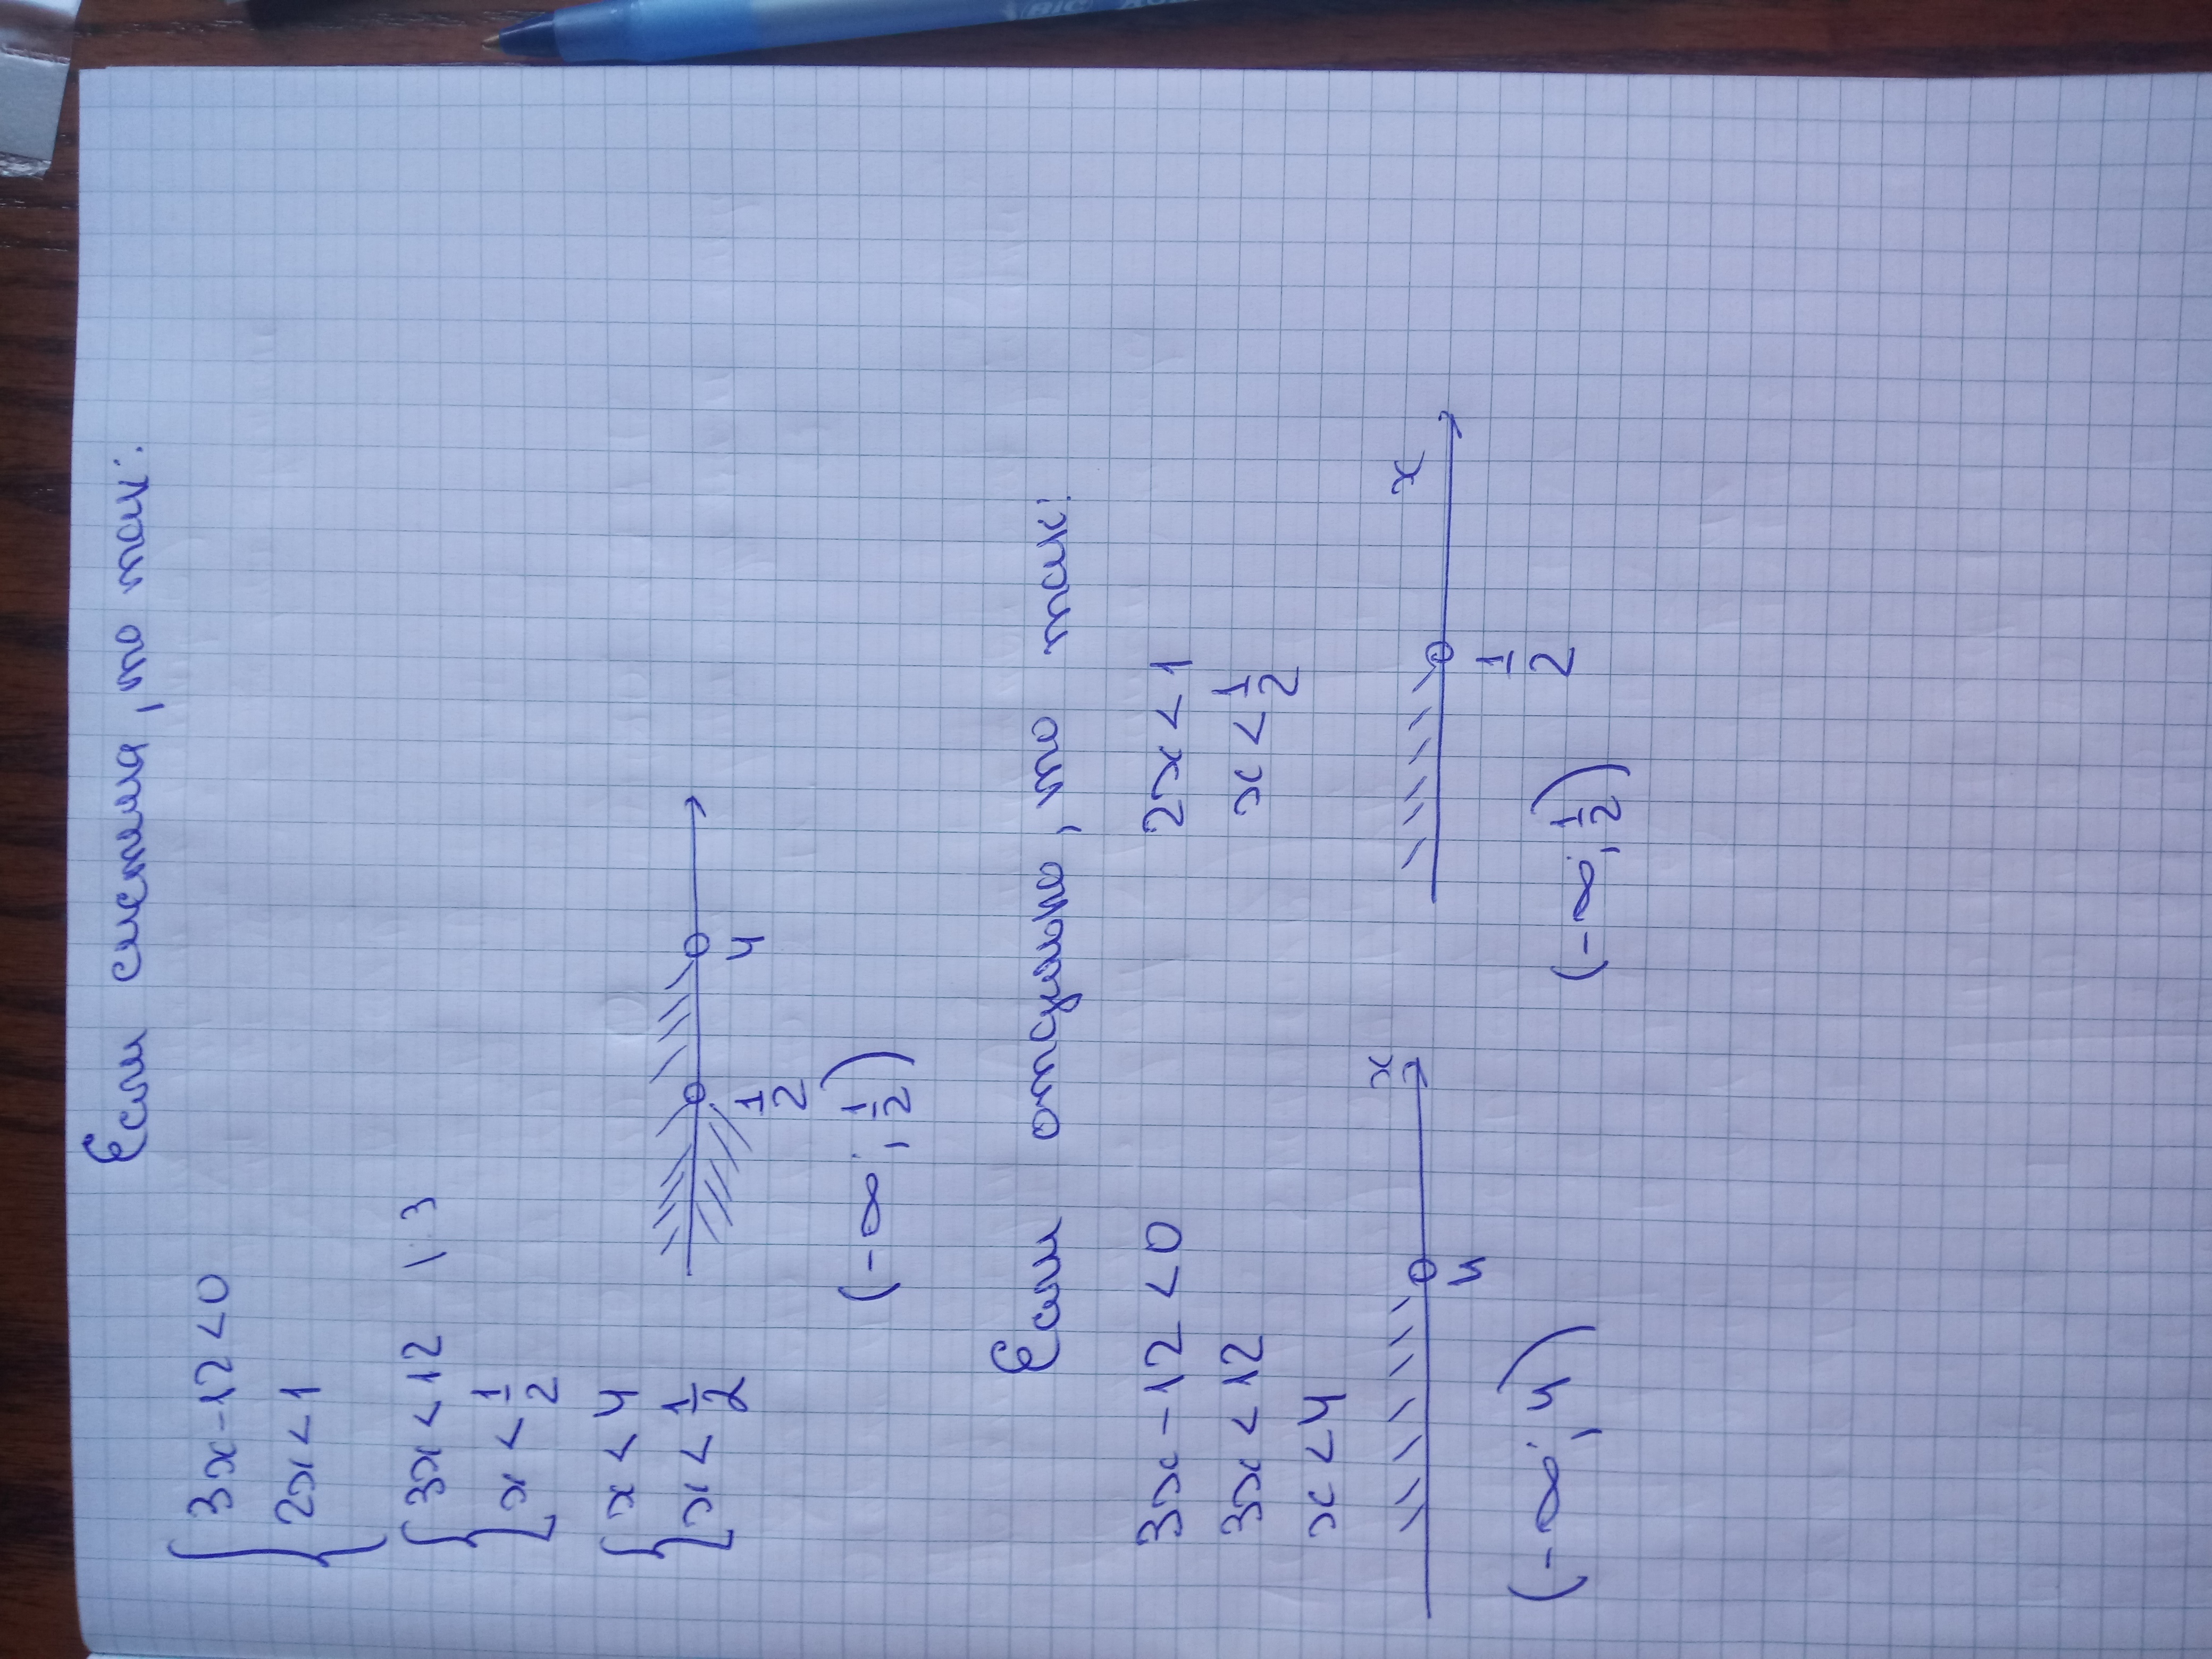 Если система, то так:
{ 3x-12<0
2x<1
{ 3x<12 | : 3
x<1/2
{ x<4
x<1/2
1/2 4
(-∞; 1/2)
Если отдельно, то так:
3x-12<0
3x<12
x<4
x
4
(-∞; 4)
2x<1
x<1/2
x
1/2
(-∞; 1/2)